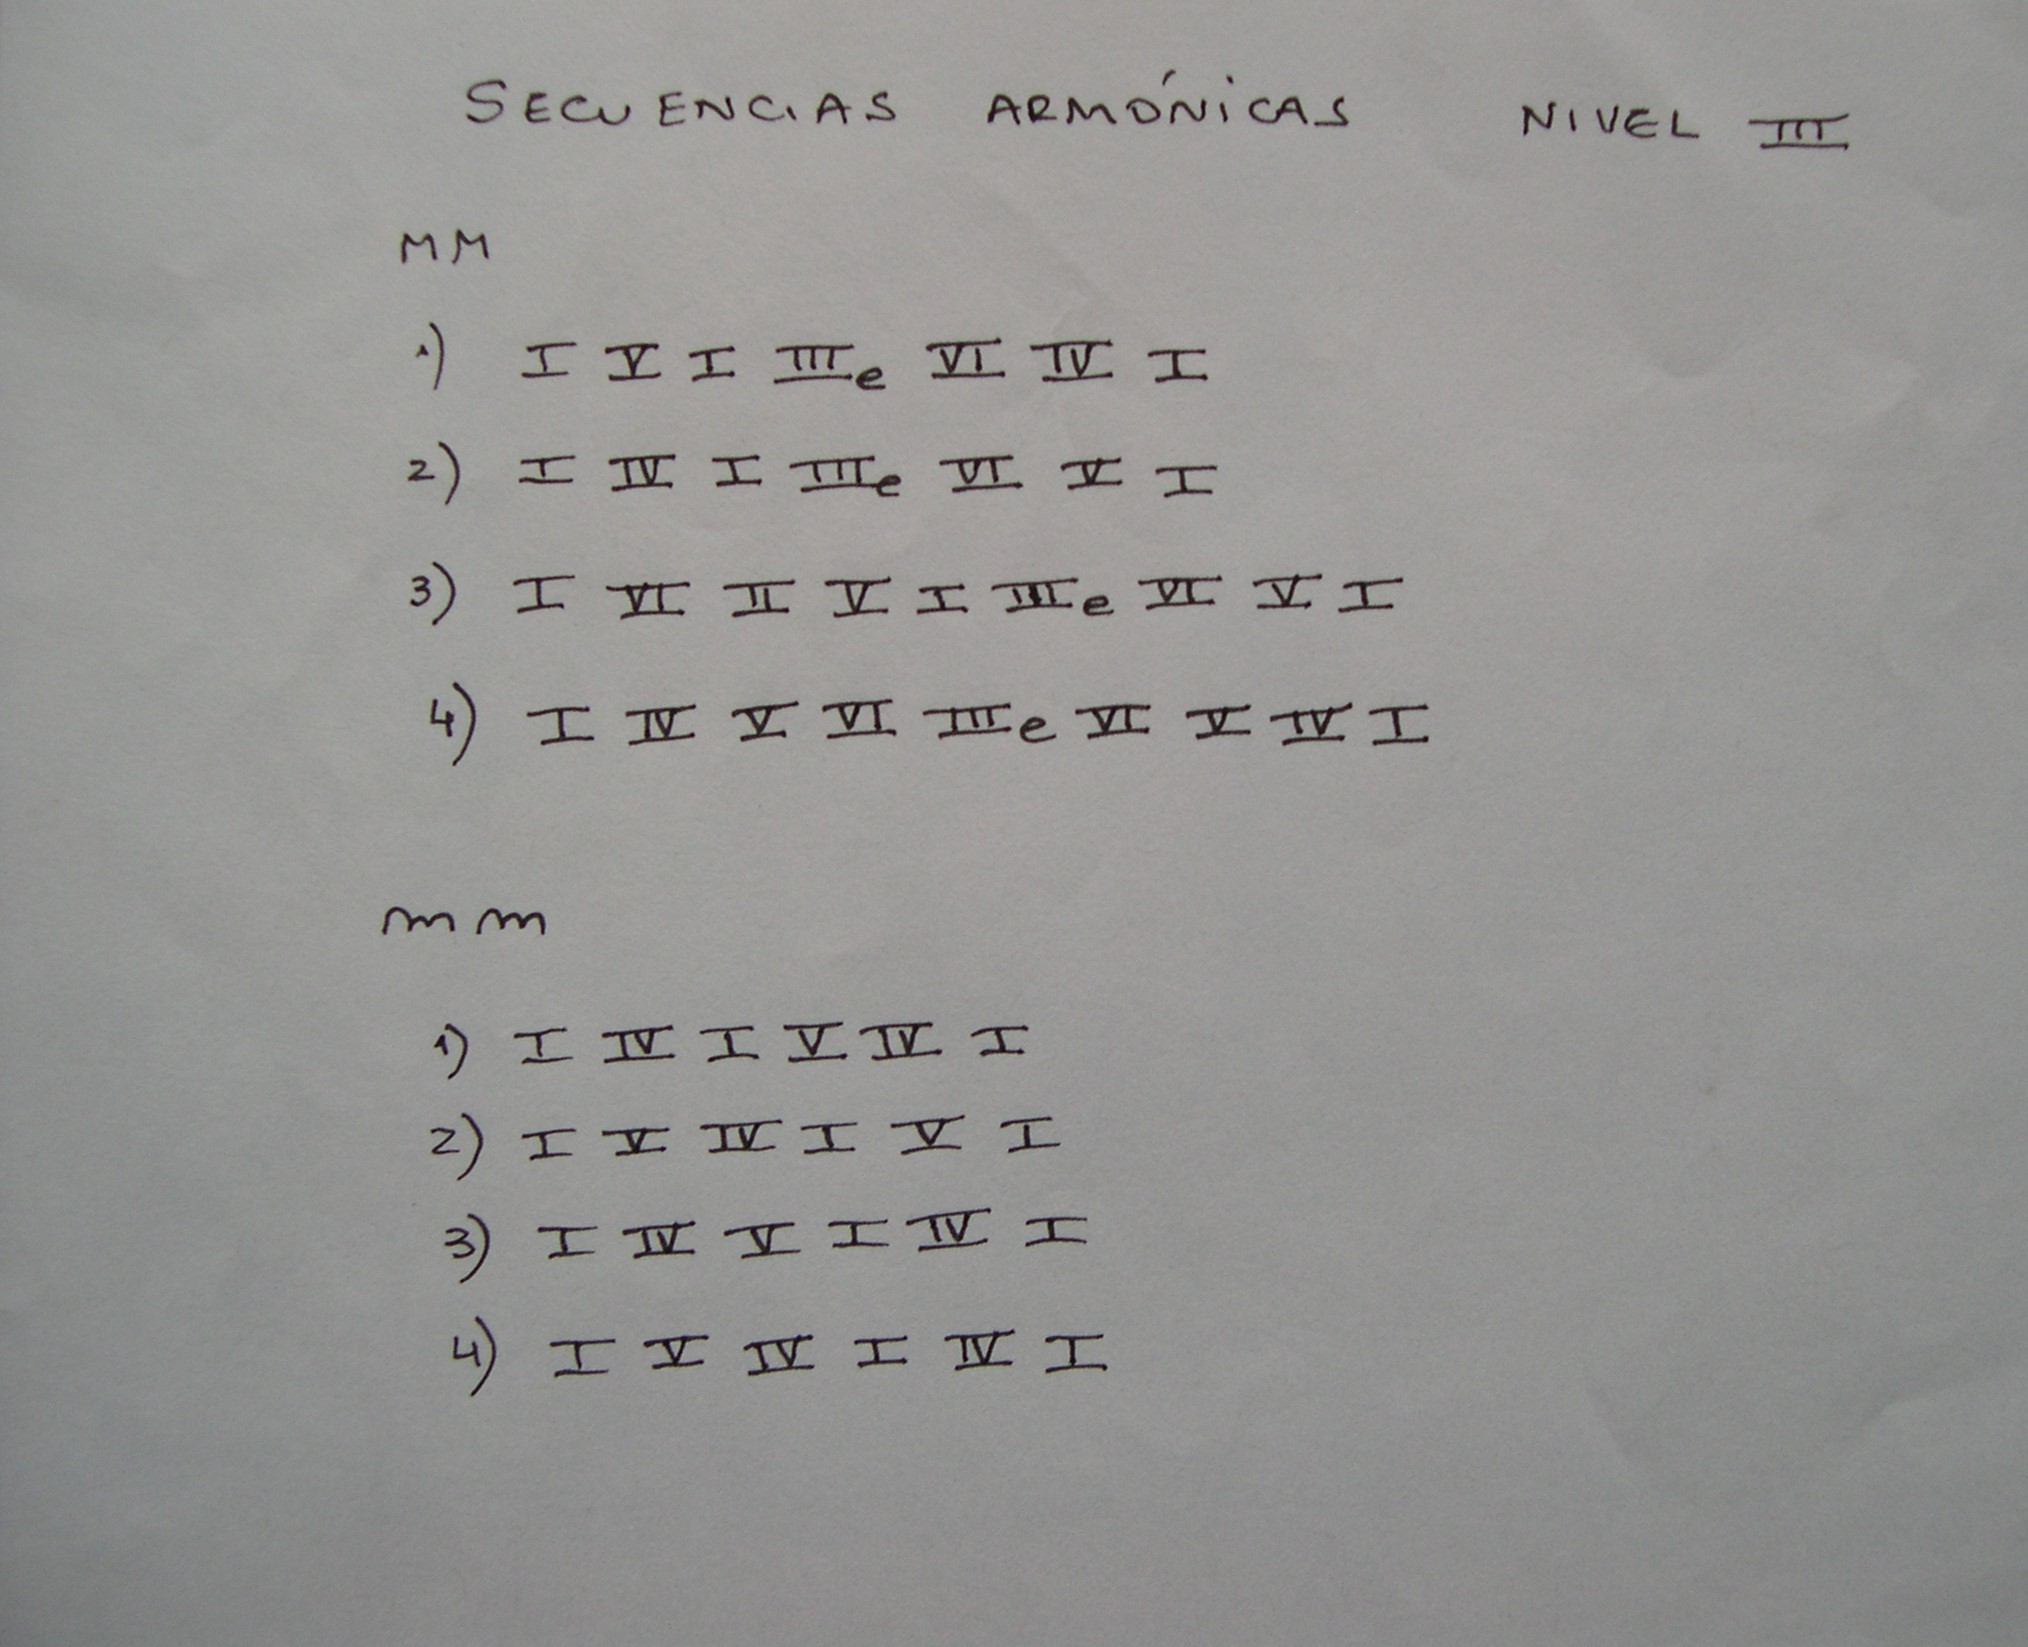 SECUENCIAS ARMÓNICAS NIVEL III
MM
1) I V I IIIe VI IV I
2) I IV I IIIe VI V I
3) I VI II V I IIIe VI V I
4) I IV V VI IIIe VI V IV I
mm
1) I IV I V IV I
2) I V IV I V I
3) I IV V I IV I
4) I V IV I IV I